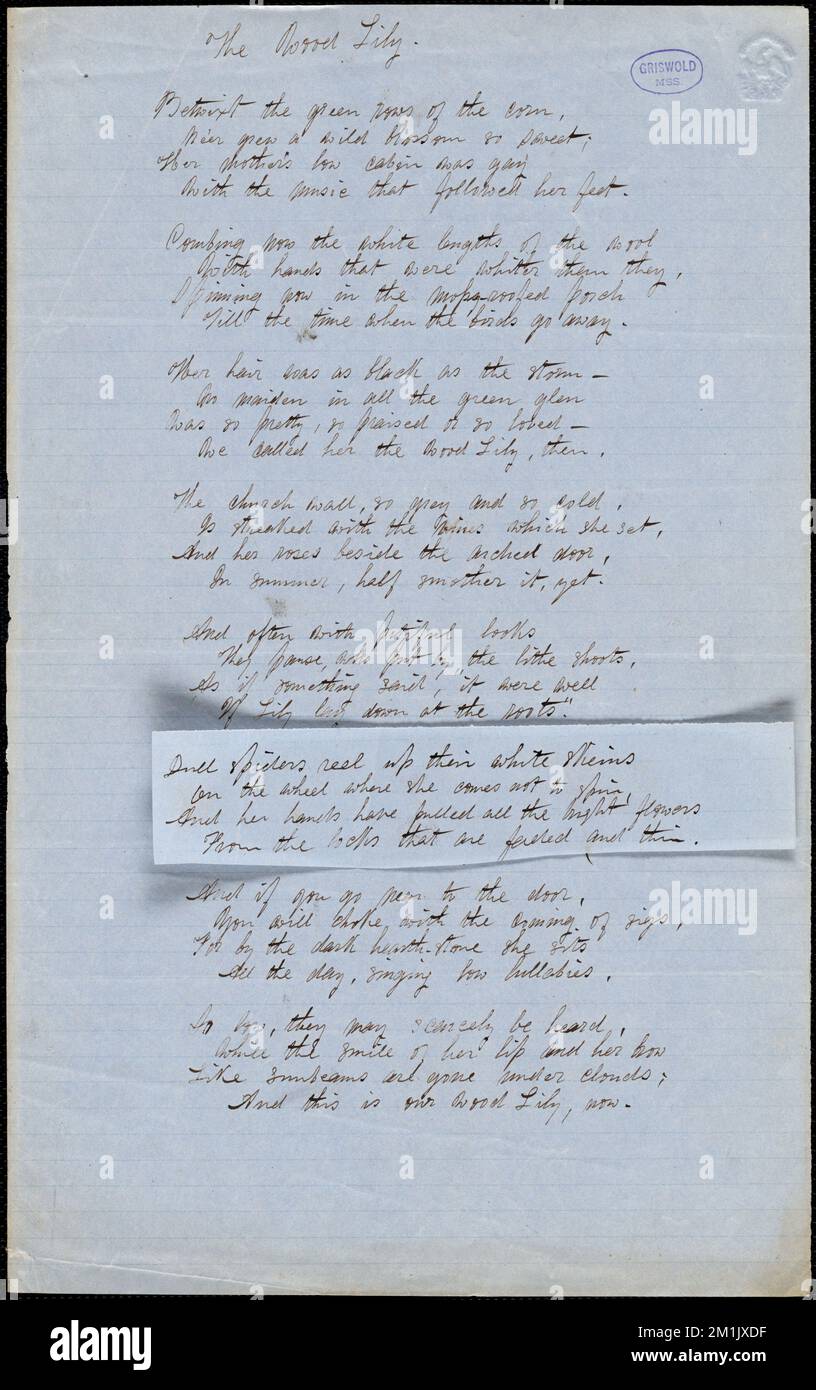 The Wood Lily.
GRISWOLD
MSS.
Betwixt the green rows of the corn,
Ne'er grew a wild blossom so sweet;
Her mother's low cabin was gay
With the music that followed her feet.
Combing now the white lengths of the wool
With hands that were whiter than they,
Spinning now in the mossy-roofed porch
Till the time when the birds go away.
Her hair was as black as the storm –
No maiden in all the green glen
Was so pretty, so praised or so loved –
We called her the Wood Lily, then.
The church wall, so grey and so cold,
Is streaked with the vines which she set,
And her roses beside the arched door,
In summer, half smother it, yet.
And often with pitiful looks
They pause, who put by the lithe shoots,
As if something said, "it were well
If Lily lay down at the roots."
Dull spiders reel up their white skeins
On the wheel where she comes not to spin,
And her hands have pulled all the bright flowers
From the locks that are faded and thin.
And if you go near to the door,
You will choke with the coming of sighs,
For by the dark hearth-stone she sits
All the day, singing low lullabies.
So low, they may scarcely be heard,
While the smile of her lip and her brow
Like sunbeams are gone under clouds;
And this is our Wood Lily, now.
alamy
Image ID: 2M1JXDF
www.alamy.com